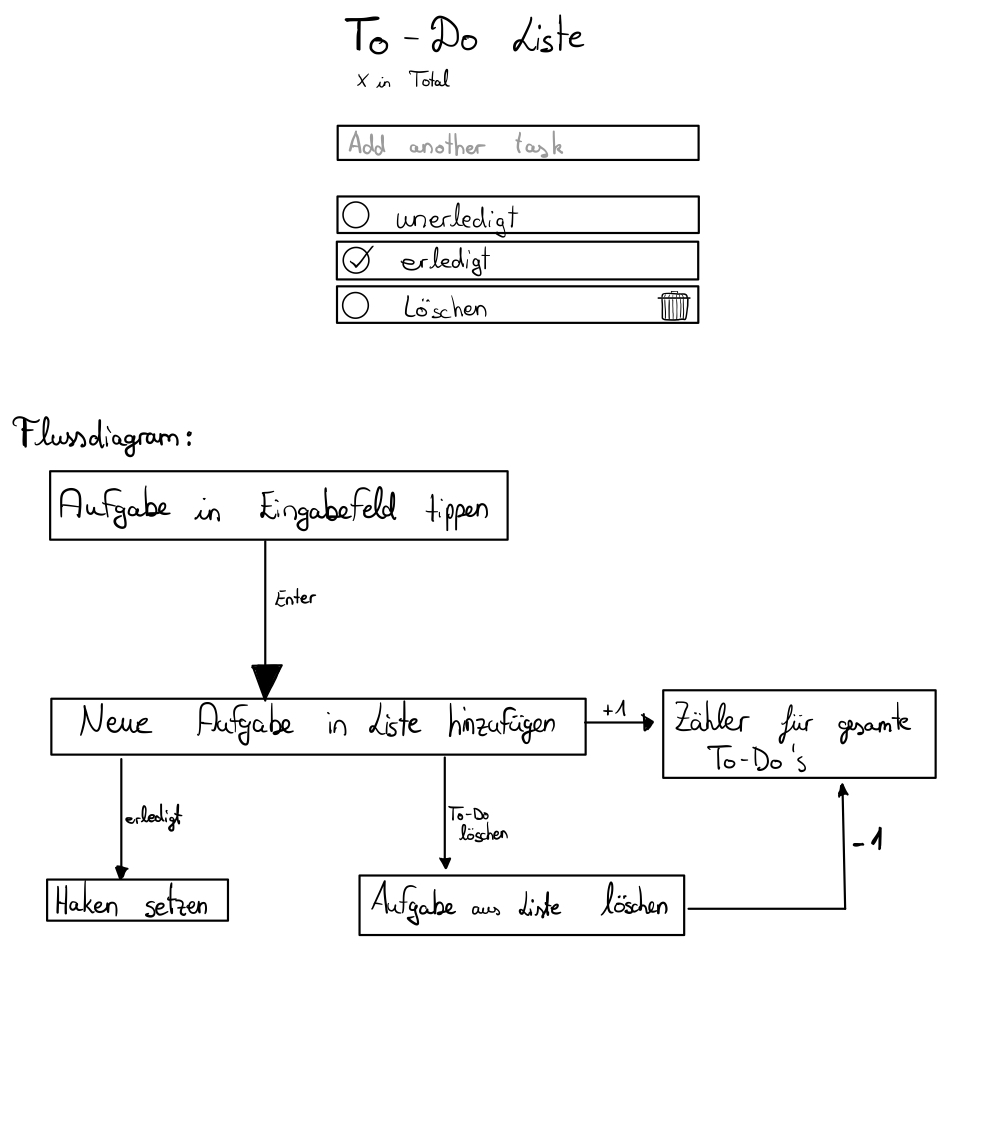 To-Do Liste
x in Total
Add another task
unerledigt
erledigt
Löschen
Flussdiagram:
Aufgabe in Eingabefeld tippen
Enter
Neue Aufgabe in Liste hinzufügen
+1
Zähler für gesamte
To-Do's
erledigt
To-Do
löschen
-1
Haken setzen
Aufgabe aus Liste löschen